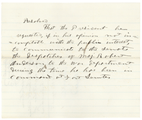 Resolved
That the President has
requested, if in his opinion not in-
compatible with the public interest,
to communicate to the Senate
the despatches of Maj. Robert
Anderson to the War Department
during the time he has been in
command at Fort Sumter